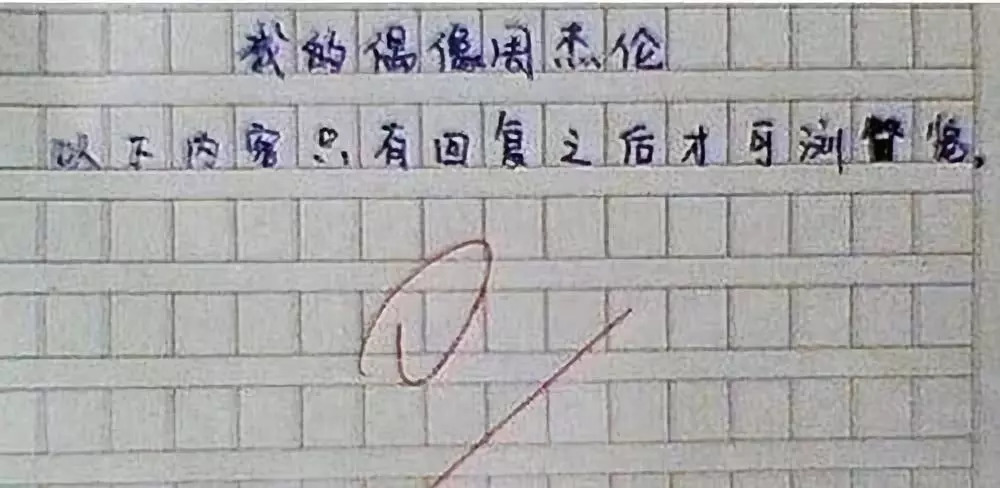 我的偶像周杰伦
以下内容只有回复之后才可浏览。
0